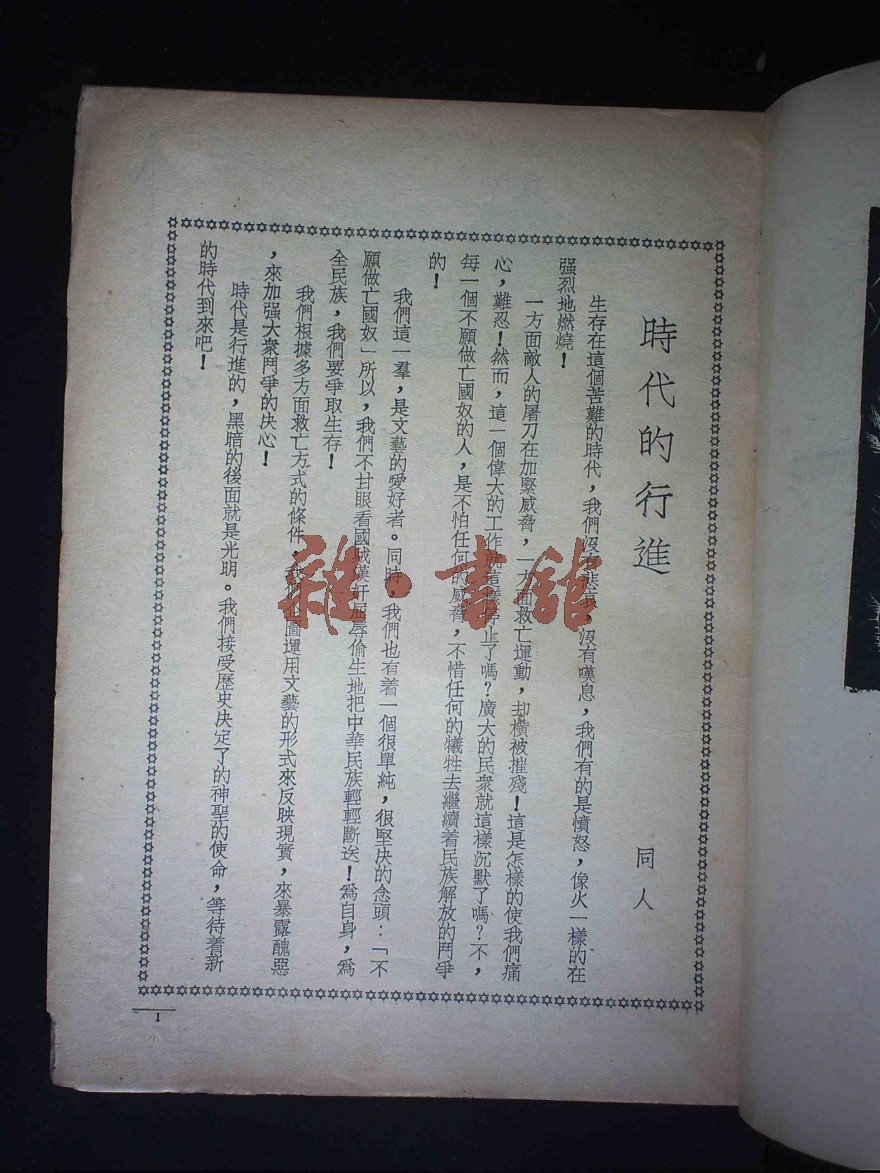 時代的行進
同人
生存在這個苦難的時代，我們沒有悲哀，沒有嘆息，我們有的是憤怒，像火一樣的在
强烈地燃燒！
一方面敵人的屠刀在加緊威脅，一方面救亡運動，却橫被摧殘！這是怎樣的使我們痛
心，難忍！然而，這一個偉大的工作就這樣停止了嗎？廣大的民衆就這樣沉默了嗎？不，
每一個不願做亡國奴的人，是不怕任何的威脅，不惜任何的犧牲去繼續着民族解放的鬥爭
的！
我們這一羣，是文藝的愛好者。同時，我們也有着一個很單純，很堅决的念頭：「不
願做亡國奴」所以，我們不甘眼看國賊漢奸屈辱偷生地把中華民族輕輕斷送！爲自身，爲
全民族，我們要爭取生存！
我們根據多方面救亡方式的條件，我們企圖運用文藝的形式來反映現實，來暴露醜惡
，來加强大衆鬥爭的决心！
時代是行進的，黑暗的後面就是光明。我們接受歷史决定了的神聖的使命，等待着新
的時代到來吧！
1
雜·書館